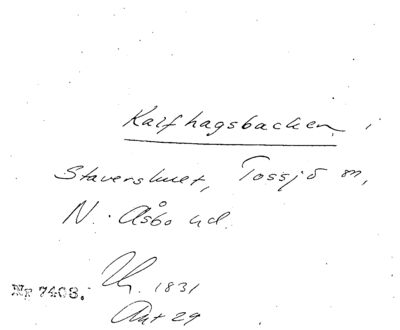 Kalfhagsbacken i
Stavershult, Tossjö sn,
N. Åsbo hd.
Nr 7408. Lh. 1831
Akt 29